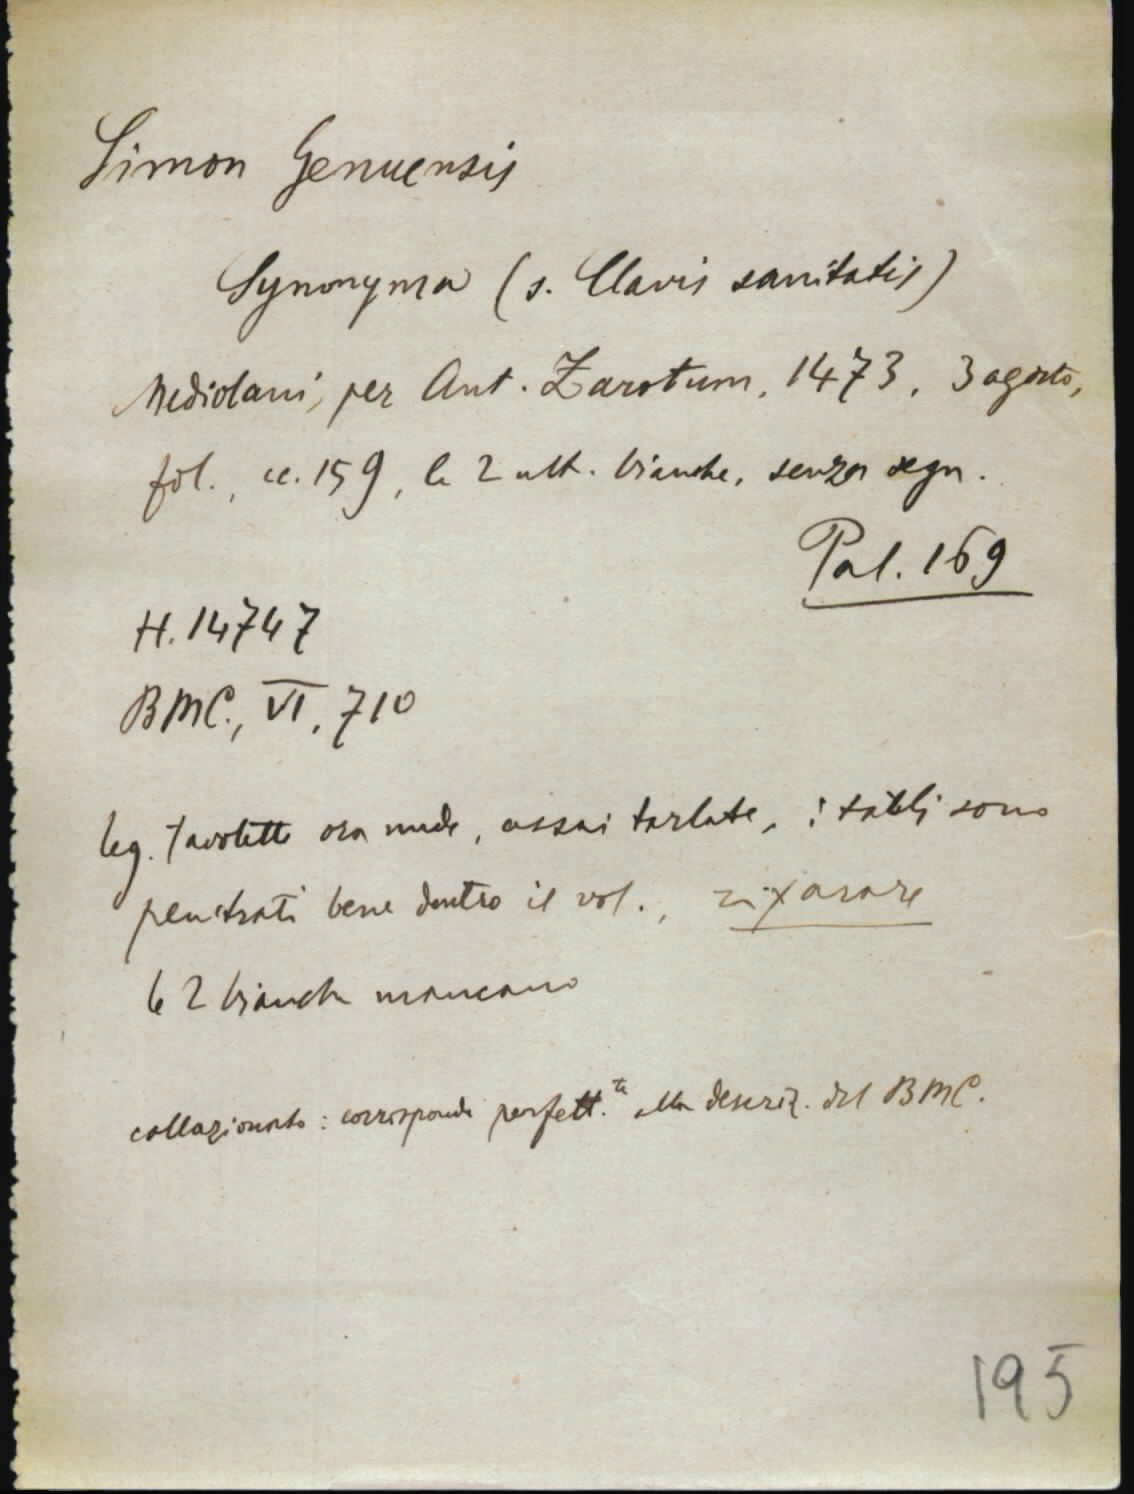 Simon Genuensis
Synonyma (s. Clavis sanitatis)
Mediolani, per Ant. Zarotum, 1473, 3 agosto,
fol., cc. 159, le 2 ult. bianche, senza segn.
Pal. 169
H. 14747
BMC., VI, 710
leg. tavolette ora nude, assai tarlate, i tarli sono
penetrati bene dentro il vol., riparare
le 2 bianche mancano
collazionato: corrisponde perfett.te alla descriz. del BMC.
195